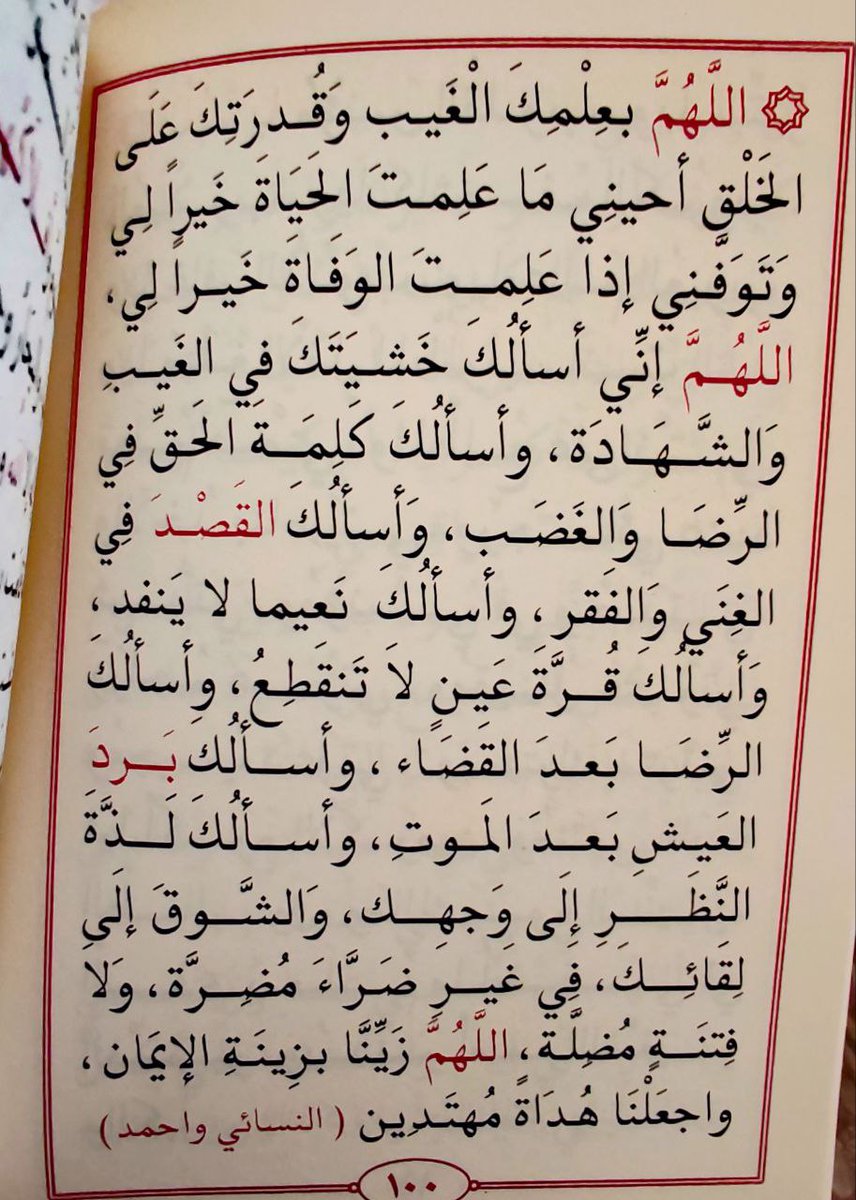 اللَّهُمَّ بعِلْمِكَ الْغَيب وَقُدرَتِكَ عَلَى
الخَلْقِ أحيِنِي مَا عَلِمتَ الحَيَاةَ خَيراً لِي
وَتَوَفَّنِي إذا عَلِمتَ الوَفَاةَ خَيراً لِي،
اللَّهُمَّ إنِّي أسألُكَ خَشيَتَكَ فِي الغَيبِ
وَالشَّهَادَة، وأسألُكَ كَلِمَةَ الحَقِّ فِي
الرِّضَا وَالغَضَب، وَأسألُكَ القَصْدَ فِي
الغِنَي وَالفَقر، وأسألُكَ نَعيما لا يَنفد،
وَأسالُكَ قُرَّةَ عَينٍ لاَ تَنقَطِعُ، وأسألُكَ
الرِّضَا بَعدَ القَضَاء، وأسألُكَ بَردَ
العَيشِ بَعدَ المَوتِ، وأسألُكَ لَذَّةَ
النَّظَرِ إلَى وَجهِك، وَالشَّوقَ إلَى
لِقَائِكَ، فِي غَيرِ ضَرَّاءَ مُضِرَّة، وَلاَ
فِتنَةٍ مُضِلَّة، اللَّهُمَّ زَيِّنَّا بزِينَةِ الإيمَان،
واجعَلْنَا هُدَاةً مُهتَدِين (النسائي واحمد)
١٠٠